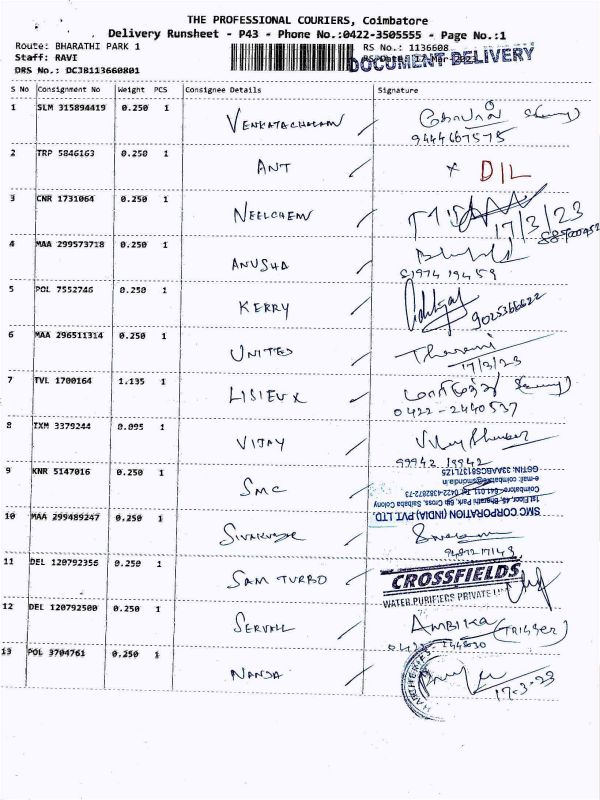 THE PROFESSIONAL COURIERS, Coimbatore
Delivery Runsheet - P43 - Phone No.:0422-3505555 - Page No.:1
Route: BHARATHI PARK 1
RS No.: 1136608
Staff: RAVI
Date: 17-Mar-2023
DOCUMENT DELIVERY
DRS No.: DCJB113660801
S No Consignment No Weight PCS Consignee Details Signature
1 SLM 315894419 0.250 1 VENKATACHALAM
9444667575
2 TRP 5846163 0.250 1 ANT x D/L
3 CNR 1731064 0.250 1 NEELCHEM
17/3/23
4 MAA 299573718 0.250 1 ANUSHA
81974 19459
5 POL 7552746 0.250 1 KERRY
9025366622
6 MAA 296511314 0.250 1 UNITED Tharani
17/3/23
7 TVL 1700164 1.135 1 LISIEUX
0422-2440537
8 IXM 3379244 0.095 1 VIJAY
99942 19942
9 KNR 5147016 0.250 1 SMC
SMC CORPORATION (INDIA) PVT. LTD.
1st Floor, 46, Bharathi Park, 6th Cross, Saibaba Colony
Coimbatore-641 011.
GSTIN: 33AABCS8137L1Z5
10 MAA 299489247 0.250 1
11 DEL 120792356 0.250 1 SAM TURBO
CROSSFIELDS
WATER PURIFIERS PRIVATE
12 DEL 120792500 0.250 1 SERVALL AMBIKA (TRIGGER)
13 POL 3704761 0.250 1 NANDA
17-3-23